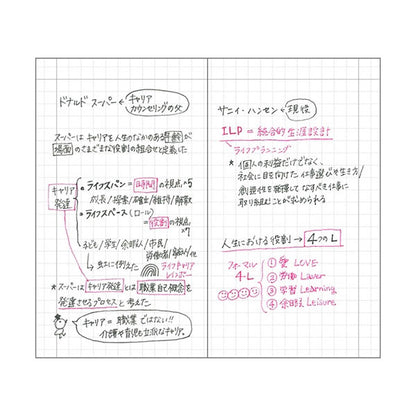 ドナルド スーパー ← キャリア
カウンセリングの父
スーパーは キャリアを人生のなかのある年齢や
場面のさまざまな役割の組合せと定義した
キャリア
発達
・ライフスパン = 時間の視点 ×5
成長/探索/確立/維持/解放
・ライフスペース(ロール)
= 役割の視点
×7
子ども/学生/余暇人/市民/
労働者/
↳ 虹に例えた
ライフキャリア
レインボー
* スーパーは キャリア発達とは 職業自己概念を
発達させるプロセスと考えた
キャリア = 職業 ではない!!
介護や育児も立派なキャリア。
サニィ・ハンセン ← 現性
ILP = 総合的生涯設計
↳ ライフプランニング
* 個人の利益だけでなく、
社会に目を向けた仕事選びや生き方/
創造性を発揮して なすべき仕事に
取り組むことが求められる
人生における役割 → 4つのL
フォーマル
4L
① 愛 LOVE
② 労働 Labor
③ 学習 Learning
④ 余暇 Leisure